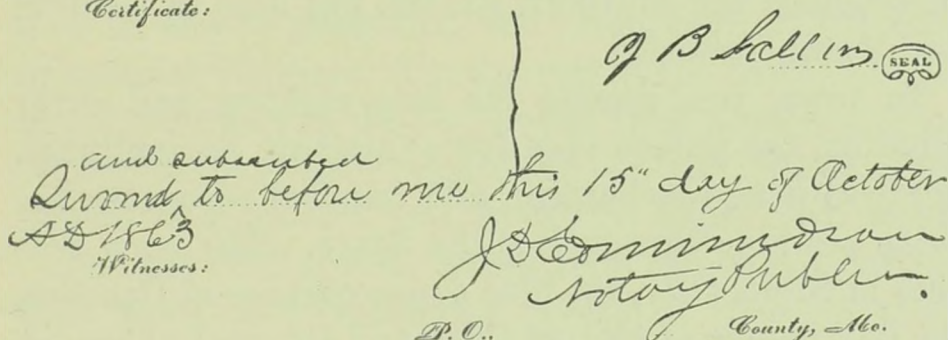 Certificate:
J B Sallin SEAL
and subscribed
Sworn to before me this 15" day of October
AD 1863
J D Edmundson
Witnesses:
Notary Public.
P. O., County, Mo.